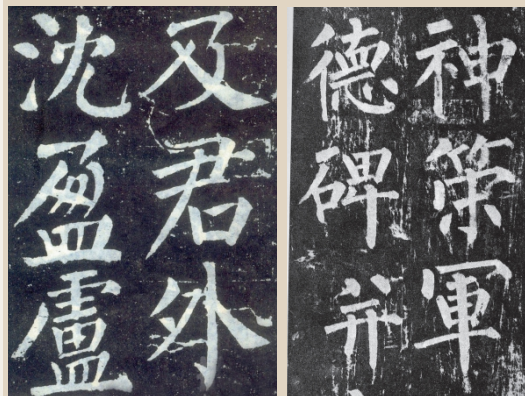 及君外
沈盈盧
神策軍
德碑并